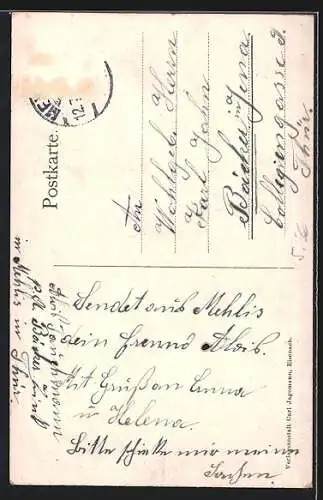 Postkarte.
An
Wohlgeb. Herrn
Karl Jahn
Bäcker in Jena
Collegiengasse 9.
Thür.
Sendet aus Mehlis
dein Freund Alois.
Mit Gruß an Anna
u Helena.
Bitte schicke mir meine
Sachen.
in Mehlis in Thür.
Verlagsanstalt Carl Jagemann, Eisenach.